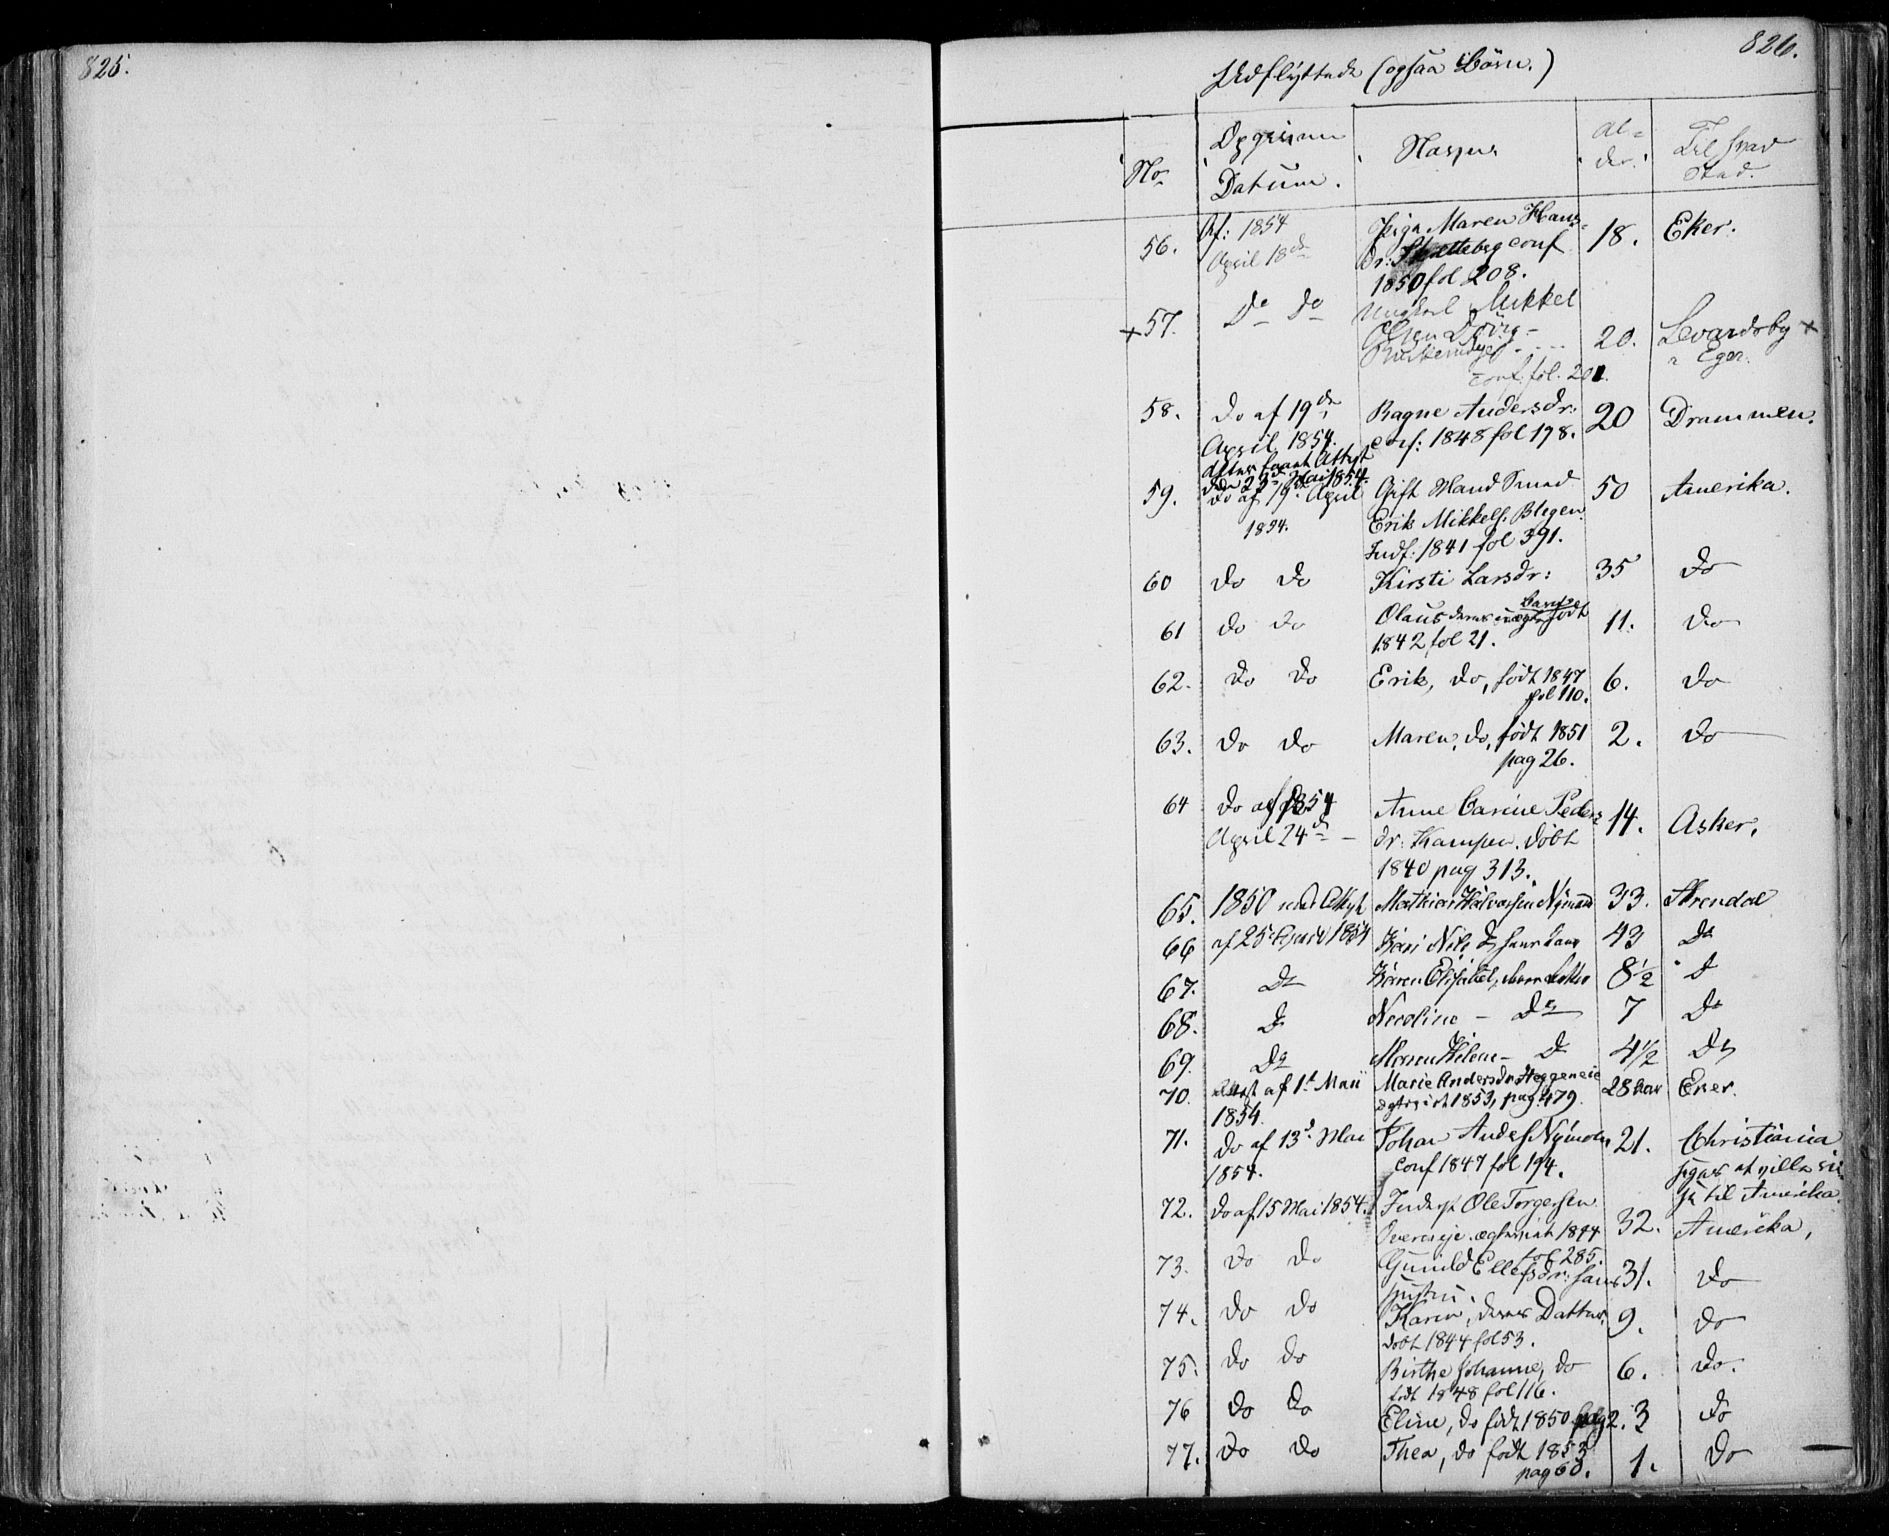 825.
826.
Udflyttede (ogsaa Börn.)
No
Opgivne Datum.
Navne
Al=
der.
Til hvad
Stad.
56. Af: 1854 Pige Maren Hans 18. Eker.
April 18de dr: conf
1850 fol 208.
+ 57. Do Do Ungkarl Mikkel
Olsen 20. +
Eger.
conf. fol. 201.
58. Do af 19de Ragne Andersdr: 20 Drammen.
April 1854. conf: 1848 fol 198.
Attest
den 23de Mai 1854.
59. do af 19de April Gift Mand Smed 50 Amerika.
1854. Erik Mikkels. Blegen
Indf: 1841 fol 391.
60 Do Do Kirsti Larsdr: 35 Do
61 do do Olaus deres uægte Barn født 11. Do
1842 fol 21.
62. Do Do Erik, do, født 1847 6. Do
fol 110.
63. Do do Maren, do, født 1851 2. Do
pag 26.
64 Do af 1854 Anne Carine Peders 14. Asker.
April 24de dr: Kampen. döbt
1840 pag 313.
65. 1850 Mathias Halvorsen 33. Arendal
66 af 25 1854 Kari Nils D. hans 43 Do
67. Do Karen Elisabet, 8½ D
68. D Nicoline – Do 7 Do
69. Do Maren Helene – D 4½ Do
70. Attest af 1ste Maii Marie Andersdr. Heggeneie 28 Aar Eker.
1854. 1853, pag. 479.
71. Do af 13de Mai Johan Anders. 21. Christiania
1854. conf 1847 fol 194. siger at ville
til Amerika.
72. do af 15 Mai 1854. Inderst Ole Torgersen
eie. ægteviet 1844 32. Amerika,
fol 285.
73. Do Do Gunild Ellefsdr: hans 31. Do
hustru.
74. Do Do Karen, deres Datter, 9. Do
döbt 1844 fol 53.
75. Do Do Birthe Johanne, do 6. Do.
født 1848 fol 116.
76 Do Do Eline, do født 1850 pag 2. 3 Do
77. Do Do Thea, do født 1853 1. Do
pag 60.